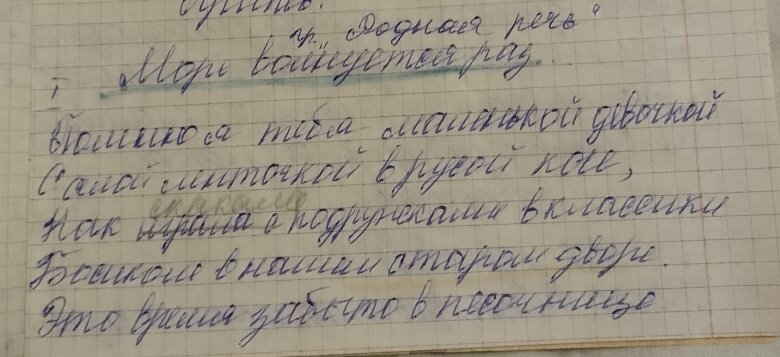 гр. "Родная речь"
Море волнуется раз.
I
Помню я тебя маленькой девочкой
С алой ленточкой в русой косе,
скакала
Как играла с подружками в классики
Босиком в нашем старом дворе.
Это время забыто в песочнице